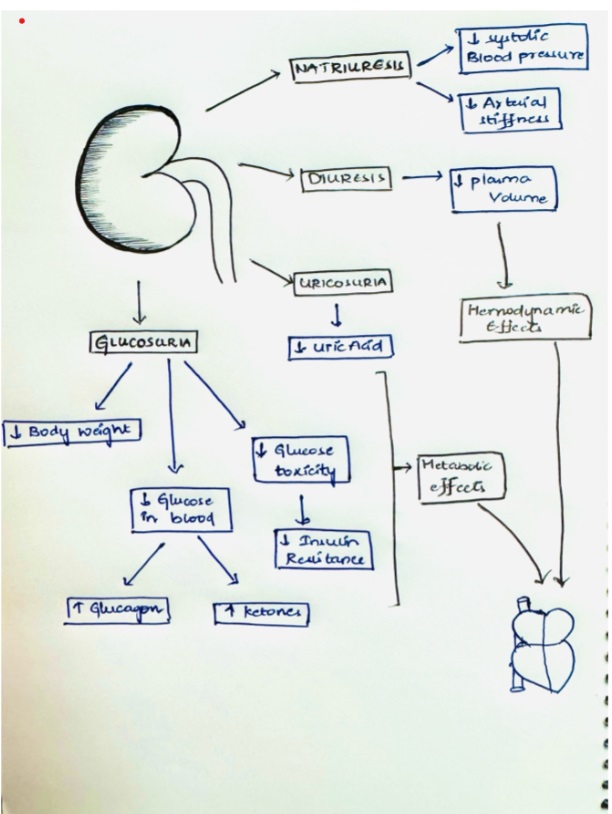 NATRIURESIS
↓ systolic
Blood pressure
↓ Arterial
stiffness
DIURESIS
↓ plasma
Volume
URICOSURIA
↓ uric Acid
Hemodynamic
Effects
GLUCOSURIA
↓ Body weight
↓ Glucose
toxicity
↓ Glucose
in blood
↓ Insulin
Resistance
Metabolic
effects
↑ Glucagon
↑ ketones